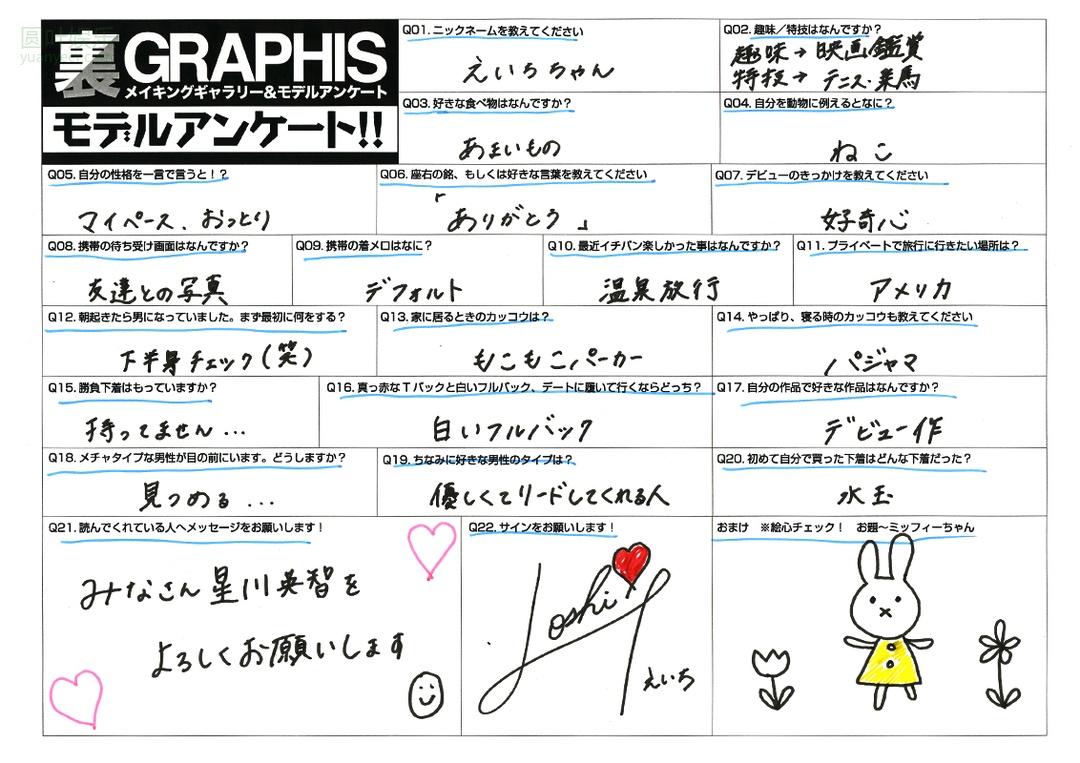 圆叶娱乐
裏GRAPHIS
メイキングギャラリー&モデルアンケート
モデルアンケート!!
Q01. ニックネームを教えてください
えいちちゃん
Q02. 趣味／特技はなんですか？
趣味→映画鑑賞
特技→テニス・乗馬
Q03. 好きな食べ物はなんですか？
あまいもの
Q04. 自分を動物に例えるとなに？
ねこ
Q05. 自分の性格を一言で言うと！？
マイペース、おっとり
Q06. 座右の銘、もしくは好きな言葉を教えてください
「ありがとう」
Q07. デビューのきっかけを教えてください
好奇心
Q08. 携帯の待ち受け画面はなんですか？
友達との写真
Q09. 携帯の着メロはなに？
デフォルト
Q10. 最近イチバン楽しかった事はなんですか？
温泉旅行
Q11. プライベートで旅行に行きたい場所は？
アメリカ
Q12. 朝起きたら男になっていました。まず最初に何をする？
下半身チェック(笑)
Q13. 家に居るときのカッコウは？
もこもこパーカー
Q14. やっぱり、寝る時のカッコウも教えてください
パジャマ
Q15. 勝負下着はもっていますか？
持ってません...
Q16. 真っ赤なTバックと白いフルバック、デートに履いて行くならどっち？
白いフルバック
Q17. 自分の作品で好きな作品はなんですか？
デビュー作
Q18. メチャタイプな男性が目の前にいます。どうしますか？
見つめる...
Q19. ちなみに好きな男性のタイプは？
優しくてリードしてくれる人
Q20. 初めて自分で買った下着はどんな下着だった？
水玉
Q21. 読んでくれている人へメッセージをお願いします！
みなさん星川英智を
よろしくお願いします
Q22. サインをお願いします！
えいち
おまけ　※絵心チェック！　お題〜ミッフィーちゃん